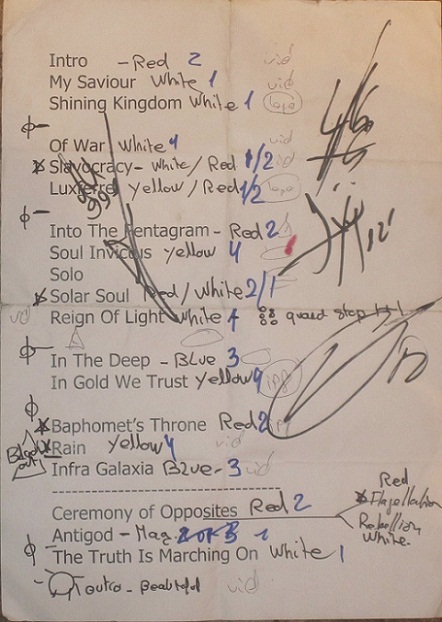 Intro - Red 2 vid
My Saviour White 1 vid
Shining Kingdom White 1 logo
Of War White 4 vid
Slavocracy - White/Red 1/2 vid
Luxferre Yellow/Red 1/2 logo
Into The Pentagram - Red 2
Soul Invictus Yellow 4
Solo
Solar Soul Red/White 2/1
vid Reign Of Light White 4 quard stop 1+1
In The Deep - Blue 3
In Gold We Trust Yellow 4
Baphomet's Throne Red 2
Rain Yellow 4 vid
Blend out
Infra Galaxia Blue - 3 vid
Ceremony of Opposites Red 2
Red
Flagellation
Rebellion
White
Antigod - Mag 2 or 3 1
The Truth Is Marching On White 1
- outro - Beautiful vid